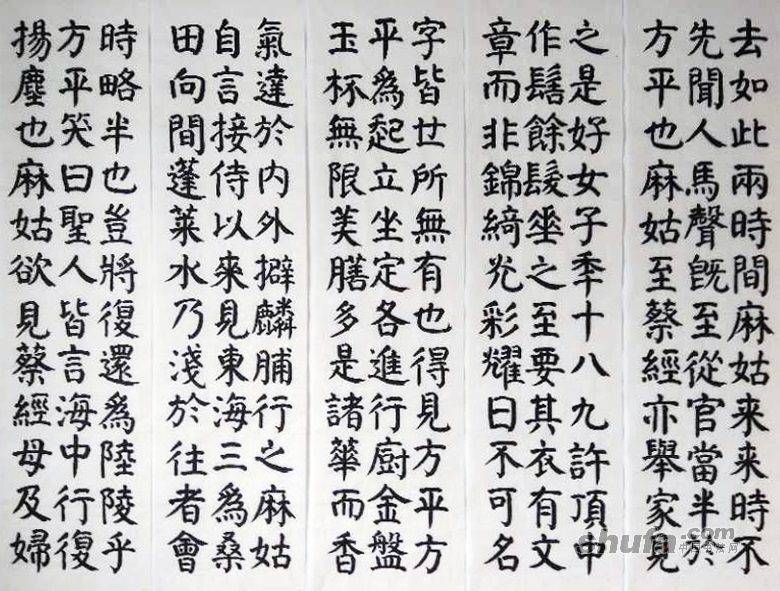 去如此兩時間麻姑来来時不
先聞人馬聲既至從官當半於
方平也麻姑至蔡經亦舉家見
之是好女子秊十八九許頂中
作髻餘髮垂之至要其衣有文
章而非錦綺光彩耀日不可名
字皆世所無有也得見方平方
平爲起立坐定各進行廚金盤
玉杯無限美膳多是諸華而香
氣達於內外擗麟脯行之麻姑
自言接侍以來見東海三爲桑
田向間蓬萊水乃淺於往者會
時略半也豈將復還爲陸陵乎
方平笑曰聖人皆言海中行復
揚塵也麻姑欲見蔡經母及婦
shufa.com
中国书法网